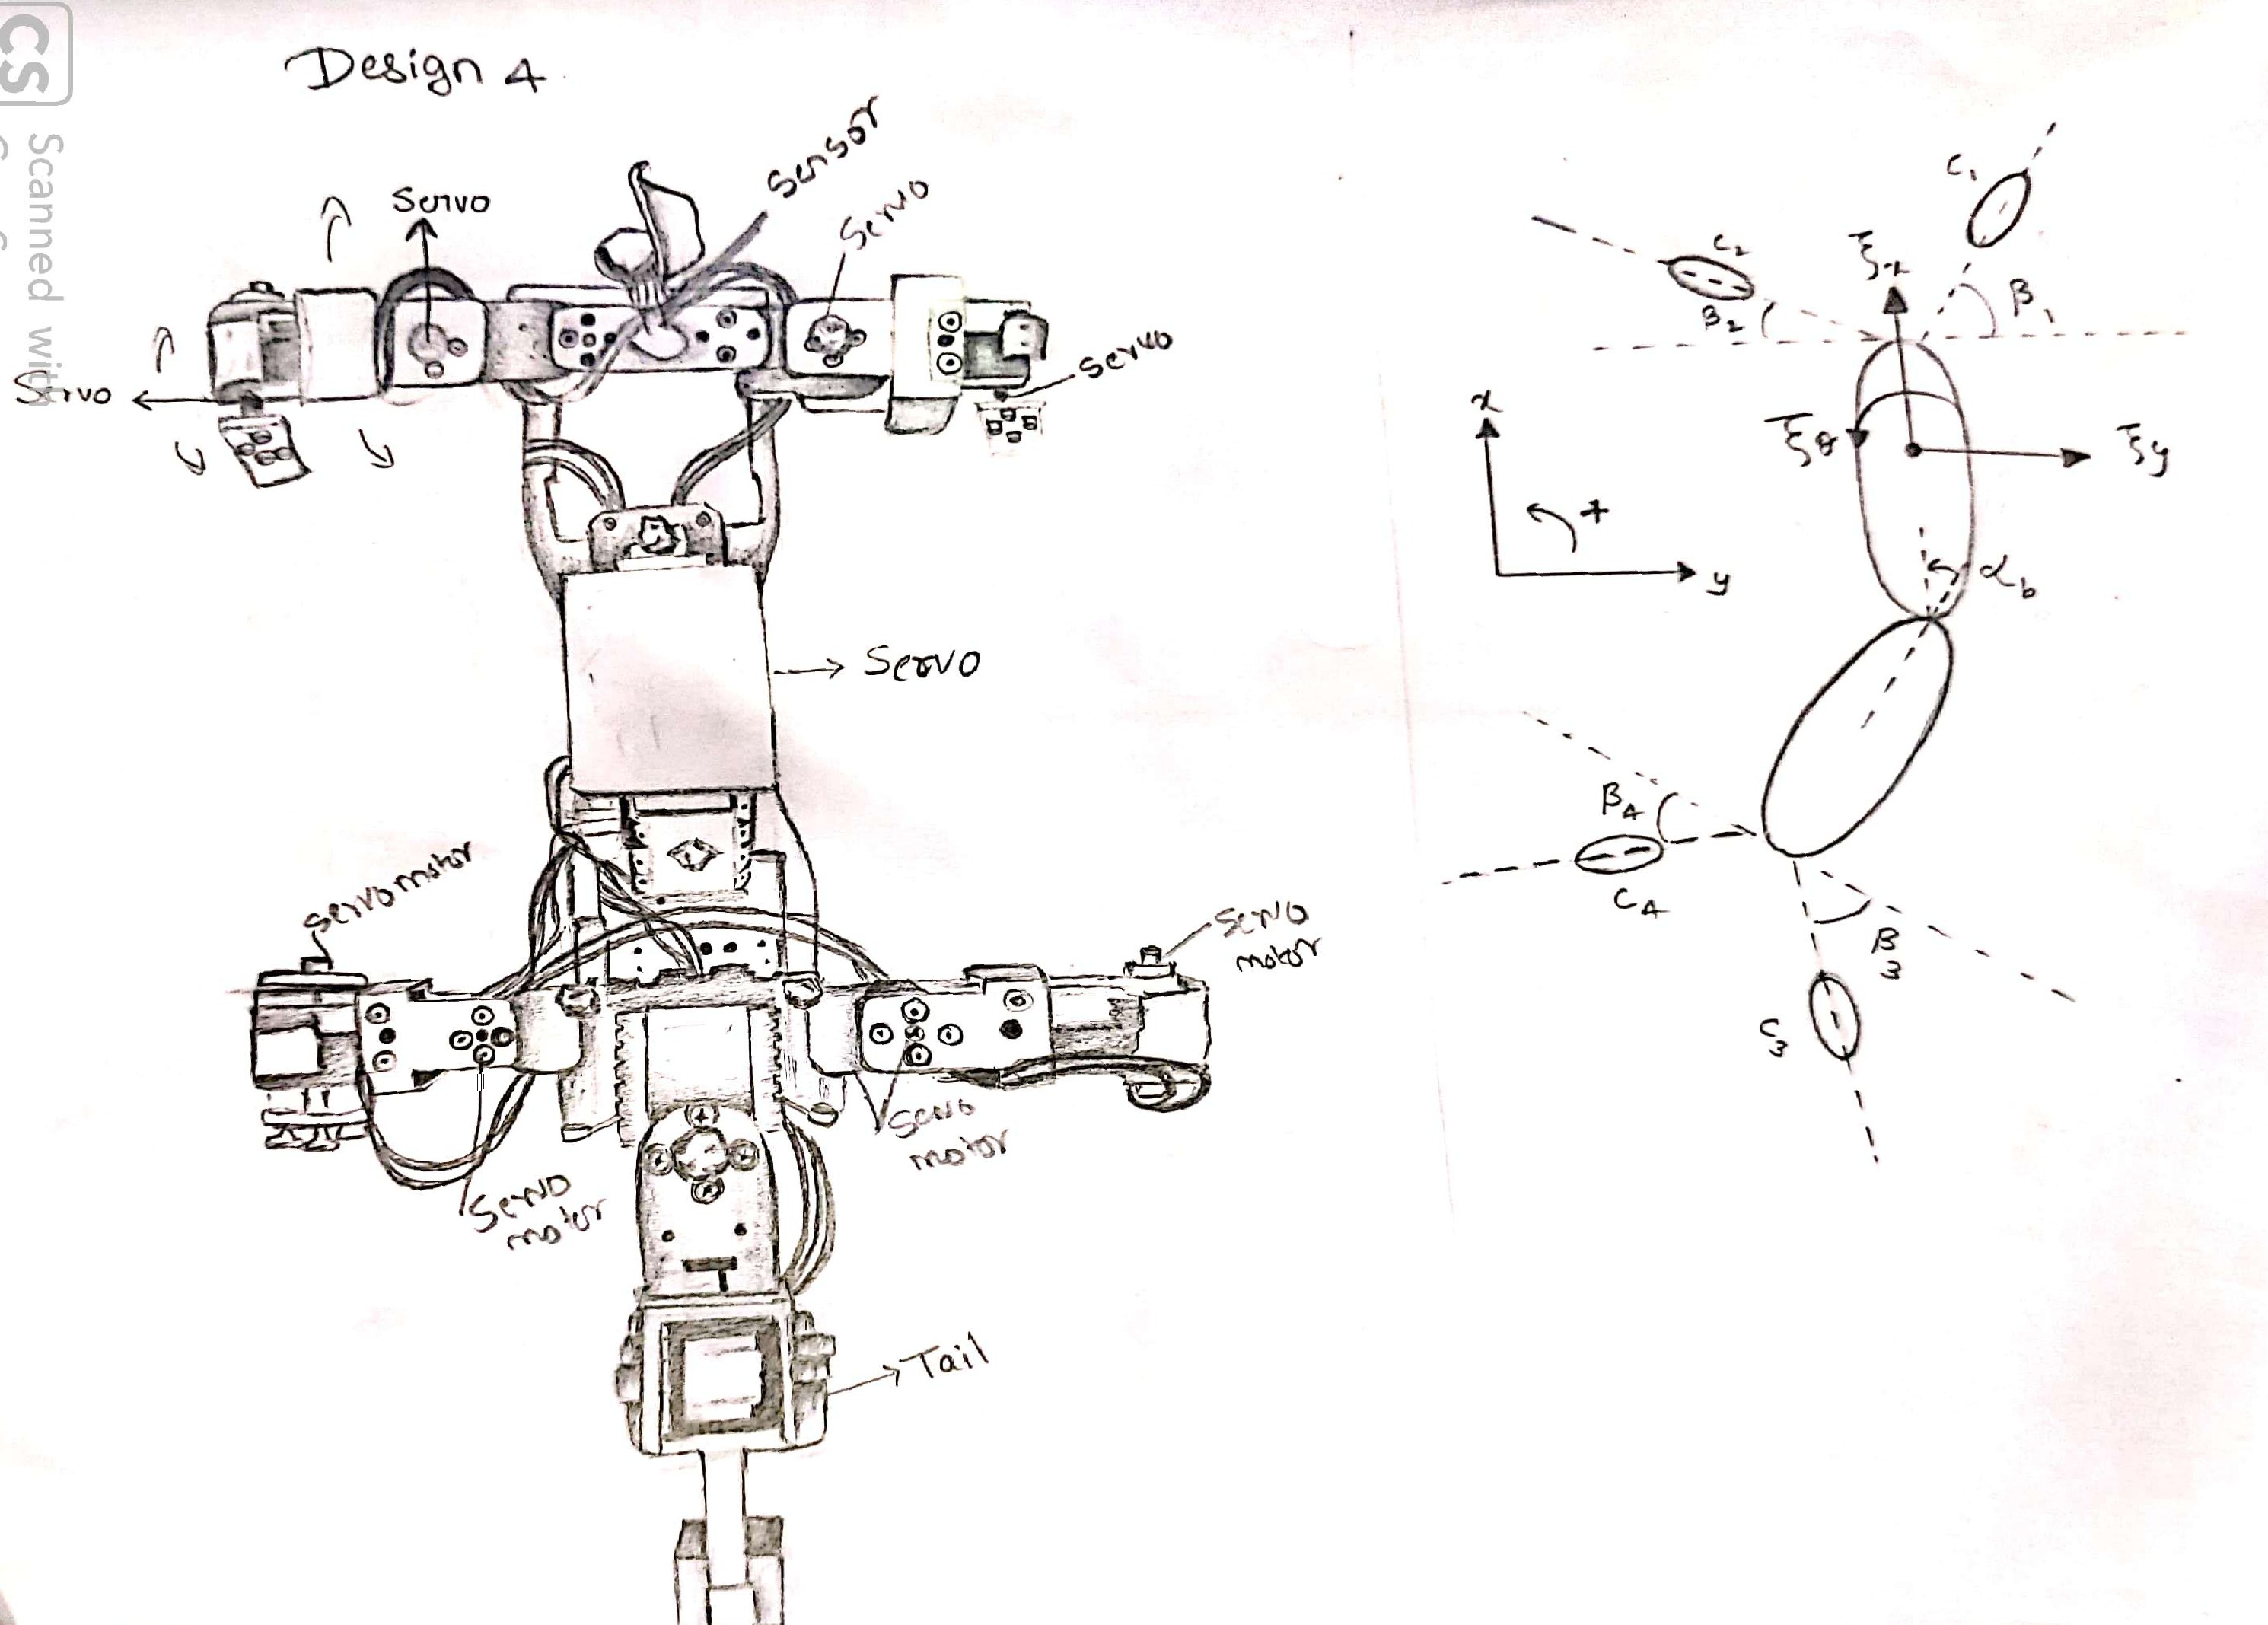 CS
Scanned with
Design 4
Sensor
Servo
Servo
Servo
Servo
Servo
servomotor
Servo
motor
Servo
motor
Servo
motor
Tail
C₁
C₂
ξx
β₁
β₂
x
ξθ
ξy
+
αb
y
β4
C4
β3
S3